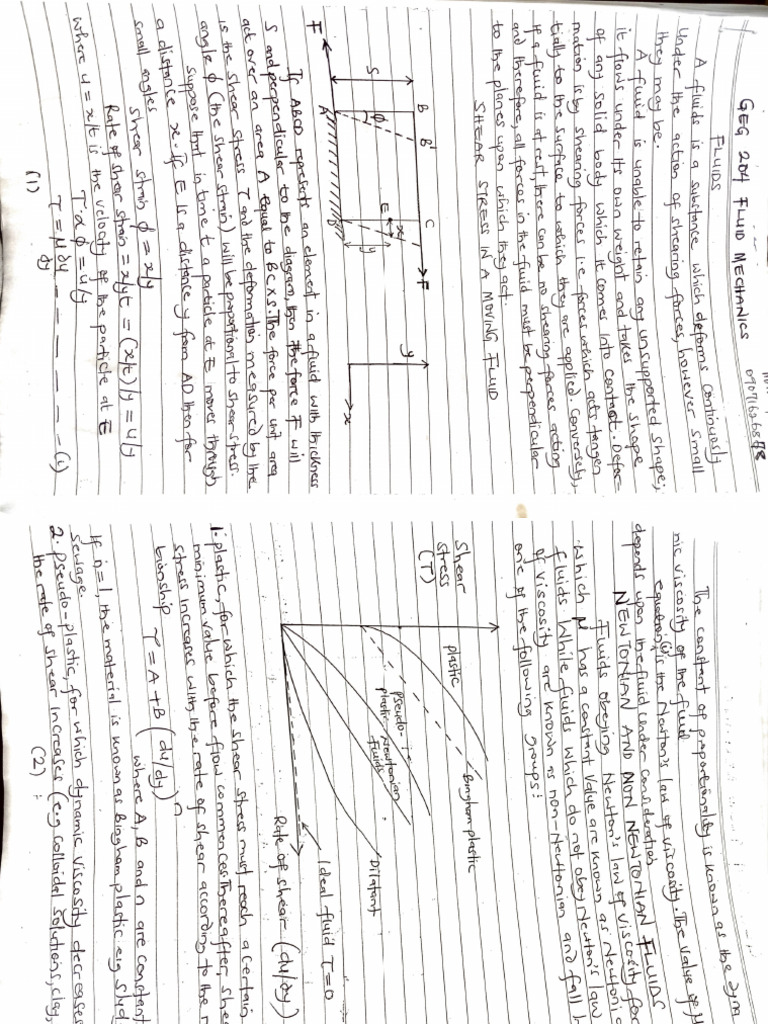 09071626878
GEG 204 FLUID MECHANICS
FLUIDS
A fluids is a substance which deforms continously
under the action of shearing forces, however small
they may be.
A fluid is unable to retain any unsupported shape;
it flows under its own weight and takes the shape
of any solid body which it comes into contact. Defor-
mation is by shearing forces i.e forces which acts tangen
tially to the surface to which they are applied. Conversely,
if a fluid is at rest, there can be no shearing forces acting
and therefore, all forces in the fluid must be perpendicular
to the planes upon which they act.
SHEAR STRESS IN A MOVING FLUID
B B' C F
S φ E x y
F A
y
x
If ABCD represents an element in a fluid with thickness
S and perpendicular to the diagram, then the force F will
act over an area A equal to BC x S. The force per unit area
is the shear stress τ and the deformation measured by the
angle φ (the shear strain) will be proportional to shear stress.
Suppose that in time t a particle at E moves through
a distance x. If E is a distance y from AD then for
small angles
Shear strain φ = x/y
Rate of shear strain = x/yt = (x/t)/y = u/y
where u = x/t is the velocity of the particle at E
τ α φ = u/y
τ = μ du/dy - - - - - - (i)
(1)
The constant of proportionality is known as the dym
mic viscosity of the fluid
equation (i) is the Newton's law of viscosity. The value of μ
depends upon the fluid under consideration
NEWTONIAN AND NON NEWTONIAN FLUIDS
Fluids obeying Newton's law of viscosity for
which μ has a constant value are known as Newtonic
fluids. While fluids which do not obey Newton's law
of viscosity are known as non-Newtonian and fall
one of the following groups:
Shear
stress
(τ)
plastic
Bingham plastic
pseudo-
plastic
Newtonian
fluids
Dilatant
Ideal fluid τ = 0
Rate of shear (du/dy)
1. plastic, for which the shear stress must reach a certain
minimum value before flow commences. Thereafter, shea
stress increases with the rate of shear according to the r
tionship
τ = A + B (du/dy)ⁿ
where A, B and n are constant
If n = 1, the material is known as Bingham plastic e.g slud
sewage.
2. pseudo-plastic, for which dynamic viscosity decreases
the rate of shear increases (e.g colloidal solutions, clay,
(2)